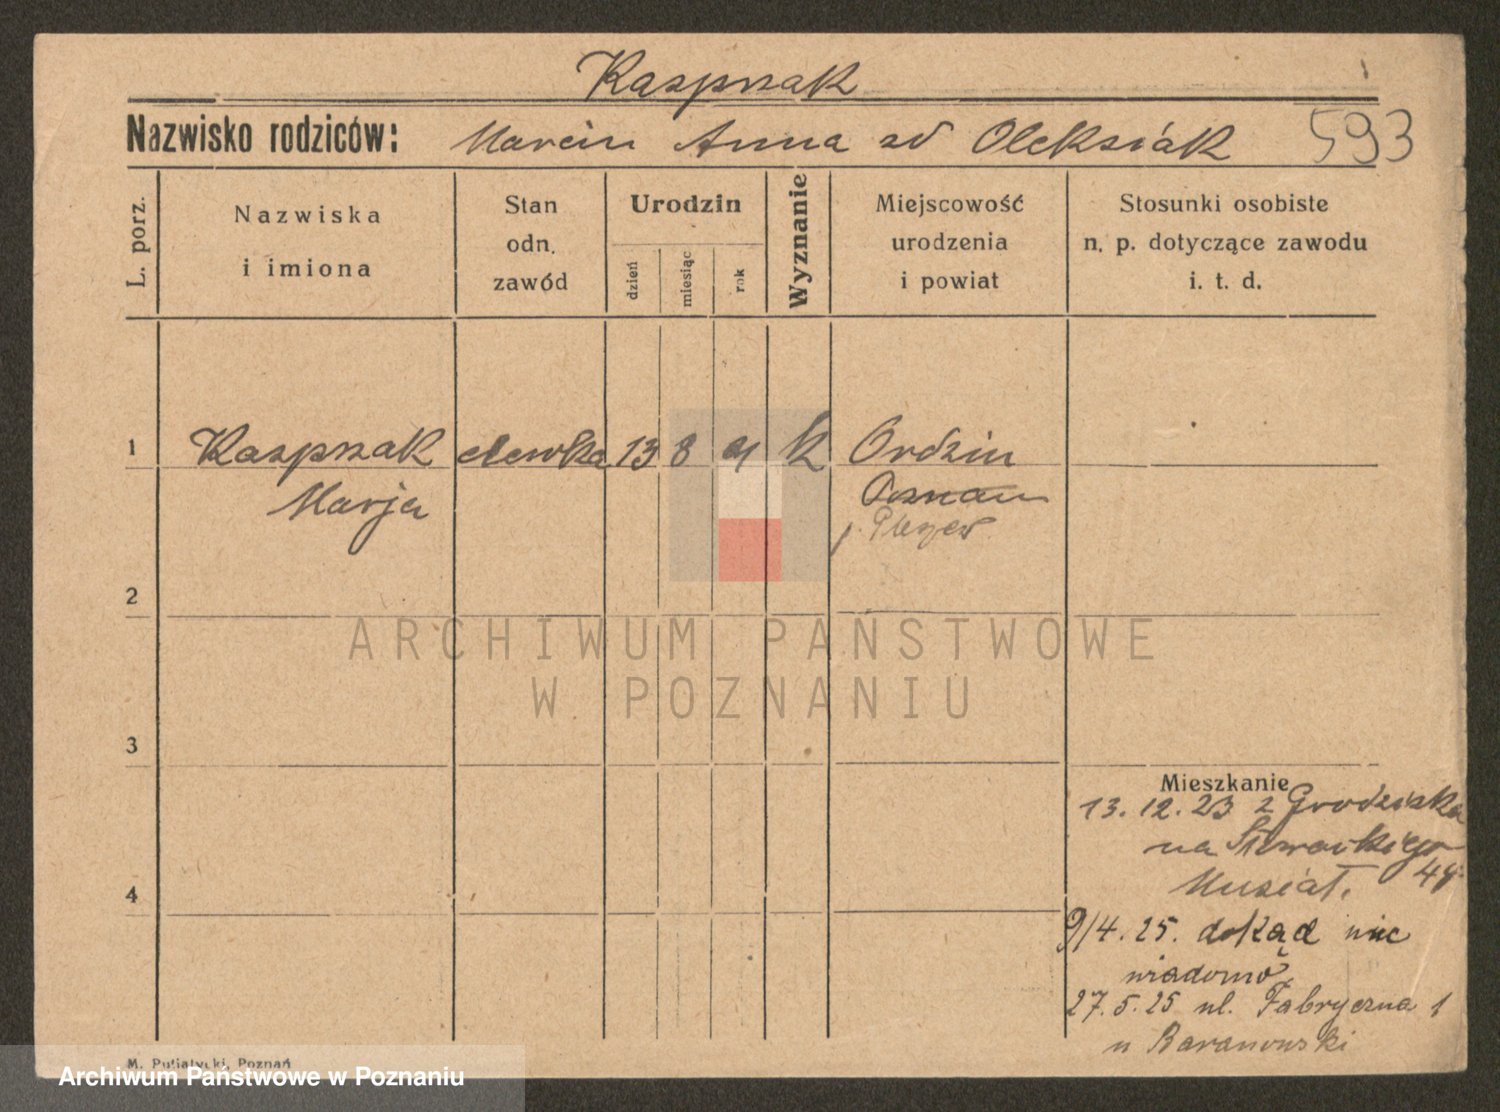 Kasprzak
Nazwisko rodziców: Marcin Anna zd Oleksiak 593
L. porz.
Nazwiska
i imiona
Stan
odn.
zawód
Urodzin
dzień
miesiąc
rok
Wyznanie
Miejscowość
urodzenia
i powiat
Stosunki osobiste
n. p. dotyczące zawodu
i. t. d.
1 Kasprzak 13 8 k Ordzin
Marja Poznań
p.
2
ARCHIWUM PAŃSTWOWE
W POZNANIU
3
Mieszkanie
13.12.23 z Grodziska
na Słowackiego
Musiał.
4
9/4.25. dokąd nie
wiadomo
27.5.25 ul. Fabryczna 1
u Baranowski
M. Putiatycki, Poznań
Archiwum Państwowe w Poznaniu